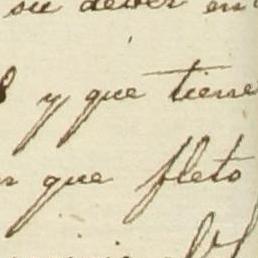 su deber en
y que tiene
que fleto